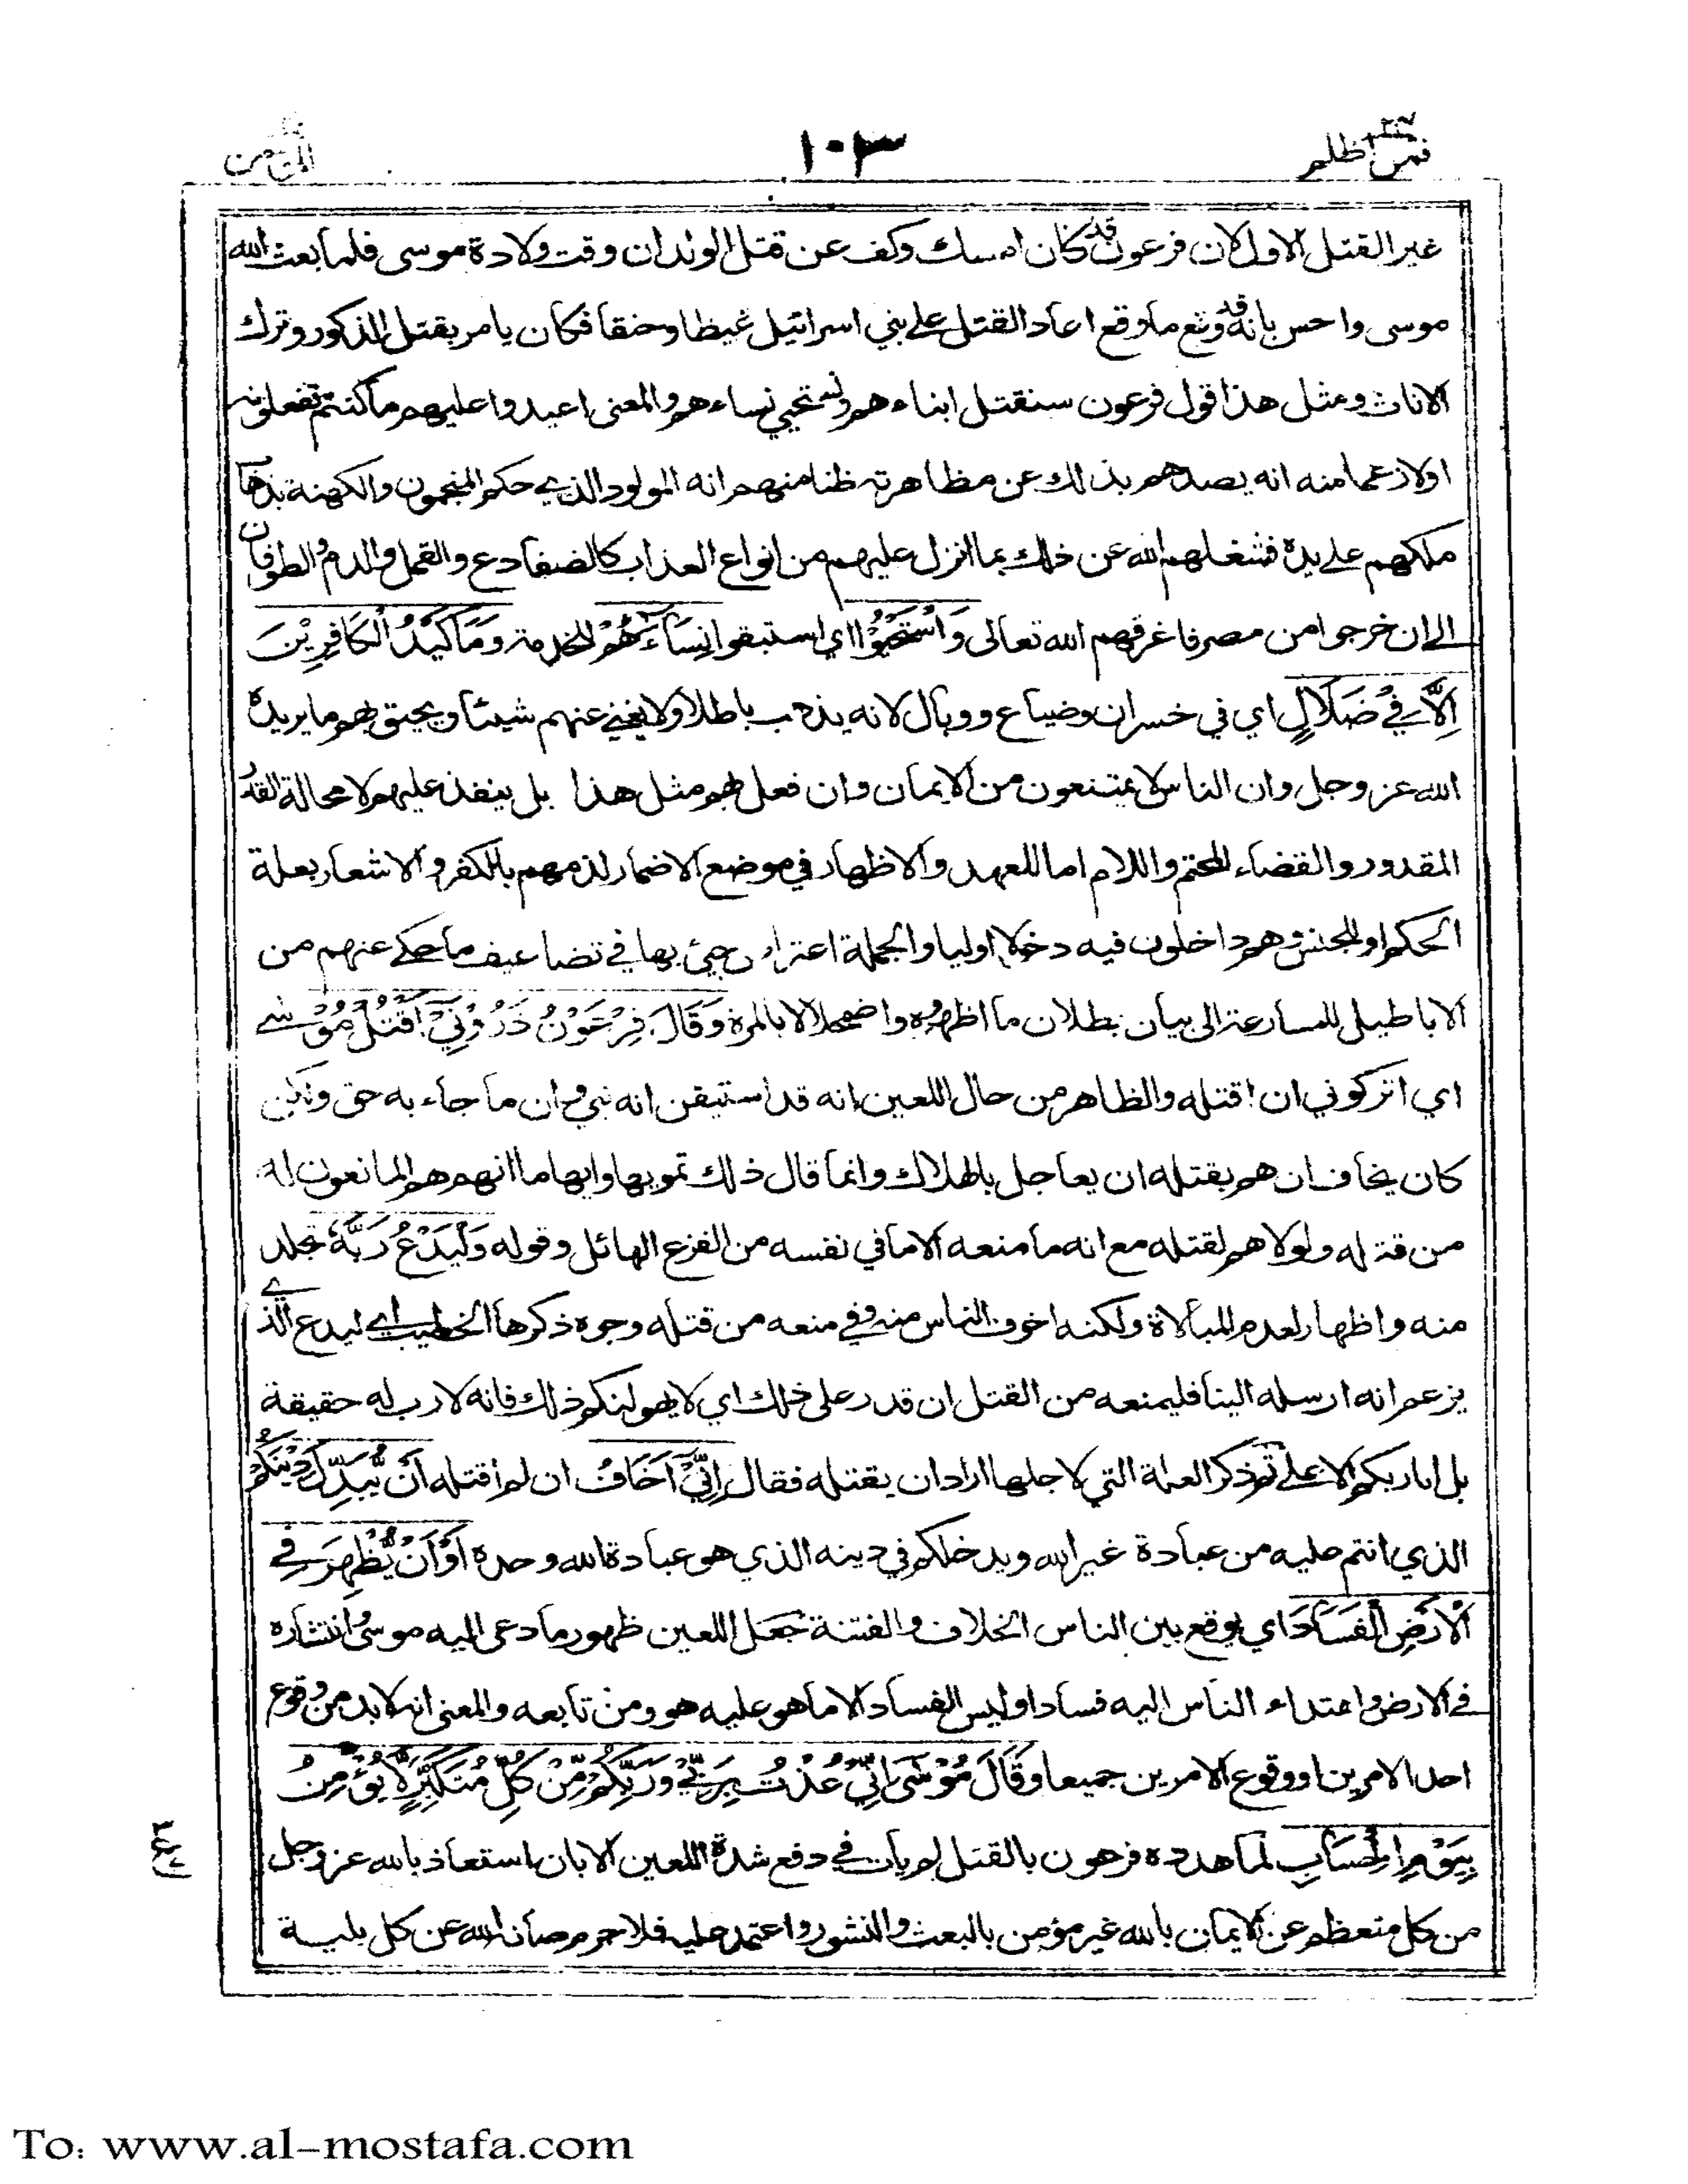 فمن اظلم ٢٤
١٠٣
المؤمن
غير القتل الاول لان فرعون قد كان امسك وكف عن قتل الولدان وقت ولادة موسى فلما بعث الله
موسى واحس بانه قد وقع ما وقع اعاد القتل على بني اسرائيل غيظا وحنقا فكان يامر بقتل الذكور وترك
الاناث ومثل هذا قول فرعون سنقتل ابناءهم ونستحيي نساءهم والمعنى اعيدوا عليهم ما كنتم تفعلونه
اولا زعما منه انه يصدهم بذلك عن مظاهرته ظنا منهم انه المولود الذي حكم المنجمون والكهنة بذهاب
ملكهم على يده فشغلهم الله عن ذلك بما انزل عليهم من انواع العذاب كالضفادع والقمل والدم والطوفان
الى ان خرجوا من مصر فاغرقهم الله تعالى وَاسْتَحْيُوْا اي استبقوا نِسَاءَهُمْ للخدمة وَمَا كَيْدُ الْكَافِرِيْنَ
اِلَّا فِيْ ضَلَالٍ اي في خسران وضياع ووبال لانه يذهب باطلا ولا يغني عنهم شيئا ويحيق بهم ما يريده
الله عز وجل وان الناس لا يمتنعون من الايمان وان فعل بهم مثل هذا بل ينفذ عليهم لا محالة القدر
المقدور والقضاء المحتم واللام اما للعهد والاظهار في موضع الاضمار لذمهم بالكفر والاشعار بعلة
الحكم او للجنس وهم داخلون فيه دخولا اوليا والجملة اعتراض جيئ بها في تضاعيف ما حكي عنهم من
الاباطيل للمسارعة الى بيان بطلان ما اظهروه واضمحلالا بالمرة وَقَالَ فِرْعَوْنُ ذَرُوْنِيْٓ اَقْتُلْ مُوْسٰى
اي اتركوني ان اقتله والظاهر من حال اللعين انه قد استيقن انه نبي وان ما جاء به حق ولكن
كان يخاف ان هم بقتله ان يعاجل بالهلاك وانما قال ذلك تمويها وايهاما انهم هم المانعون له
من قتله ولولاهم لقتله مع انه ما منعه الا ما في نفسه من الفزع الهائل وقوله وَلْيَدْعُ رَبَّهُ تجلد
منه واظهار لعدم المبالاة ولكنه اخوف الناس منه وفي منعه من قتله وجوه ذكرها الخطيب اي ليدع الذي
يزعم انه ارسله الينا فليمنعه من القتل ان قدر على ذلك اي لا يهولنكم ذلك فانه لا رب له حقيقة
بل انا ربكم الاعلى ثم ذكر العلة التي لاجلها اراد ان يقتله فقال اِنِّيْٓ اَخَافُ ان لم اقتله اَنْ يُّبَدِّلَ دِيْنَكُمْ
الذي انتم عليه من عبادة غير الله ويدخلكم في دينه الذي هو عبادة الله وحده اَوْ اَنْ يُّظْهِرَ فِي
الْاَرْضِ الْفَسَادَ اي يوقع بين الناس الخلاف والفتنة جعل اللعين ظهور ما دعى اليه موسى وانتشاره
في الارض واهتداء الناس اليه فسادا وليس الفساد الا ما هو عليه هو ومن تابعه والمعنى انه لابد من وقوع
احد الامرين او وقوع الامرين جميعا وَقَالَ مُوْسٰى اِنِّيْ عُذْتُ بِرَبِّيْ وَرَبِّكُمْ مِّنْ كُلِّ مُتَكَبِّرٍ لَّا يُؤْمِنُ
بِيَوْمِ الْحِسَابِ لما هدده فرعون بالقتل لم يات في دفع شدة اللعين الا بان استعاذ بالله عز وجل
من كل متعظم عن الايمان بالله غير مؤمن بالبعث والنشور واعتمد عليه فلا جرم صانه الله عن كل بلية
To: www.al-mostafa.com